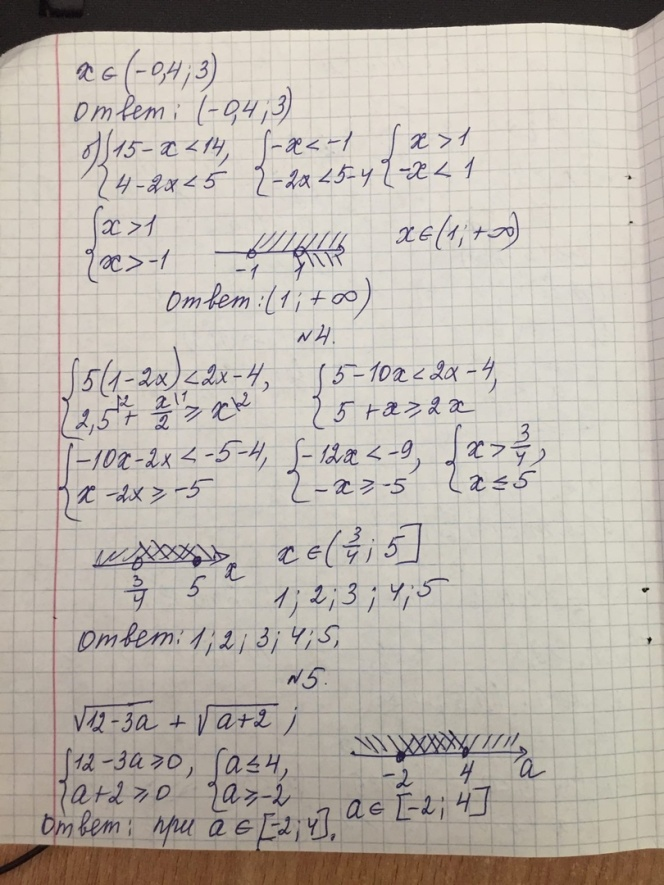 x ∈ (-0,4; 3)
Ответ: (-0,4; 3)
б) { 15 - x < 14, { -x < -1 { x > 1
{ 4 - 2x < 5 { -2x < 5 - 4 { -x < 1
{ x > 1
{ x > -1 x ∈ (1; +∞)
-1 1
Ответ: (1; +∞)
№4.
{ 5(1 - 2x) < 2x - 4, { 5 - 10x < 2x - 4,
{ 2,5\2 + x/2\1 ≥ x\2 { 5 + x ≥ 2x
{ -10x - 2x < -5 - 4, { -12x < -9, { x > 3/4,
{ x - 2x ≥ -5 { -x ≥ -5 { x ≤ 5
3/4 5 x x ∈ (3/4; 5]
1; 2; 3; 4; 5
Ответ: 1; 2; 3; 4; 5.
№5.
√12-3a + √a+2 ;
{ 12 - 3a ≥ 0, { a ≤ 4,
{ a + 2 ≥ 0 { a ≥ -2
-2 4 a
a ∈ [-2; 4]
Ответ: при a ∈ [-2; 4].